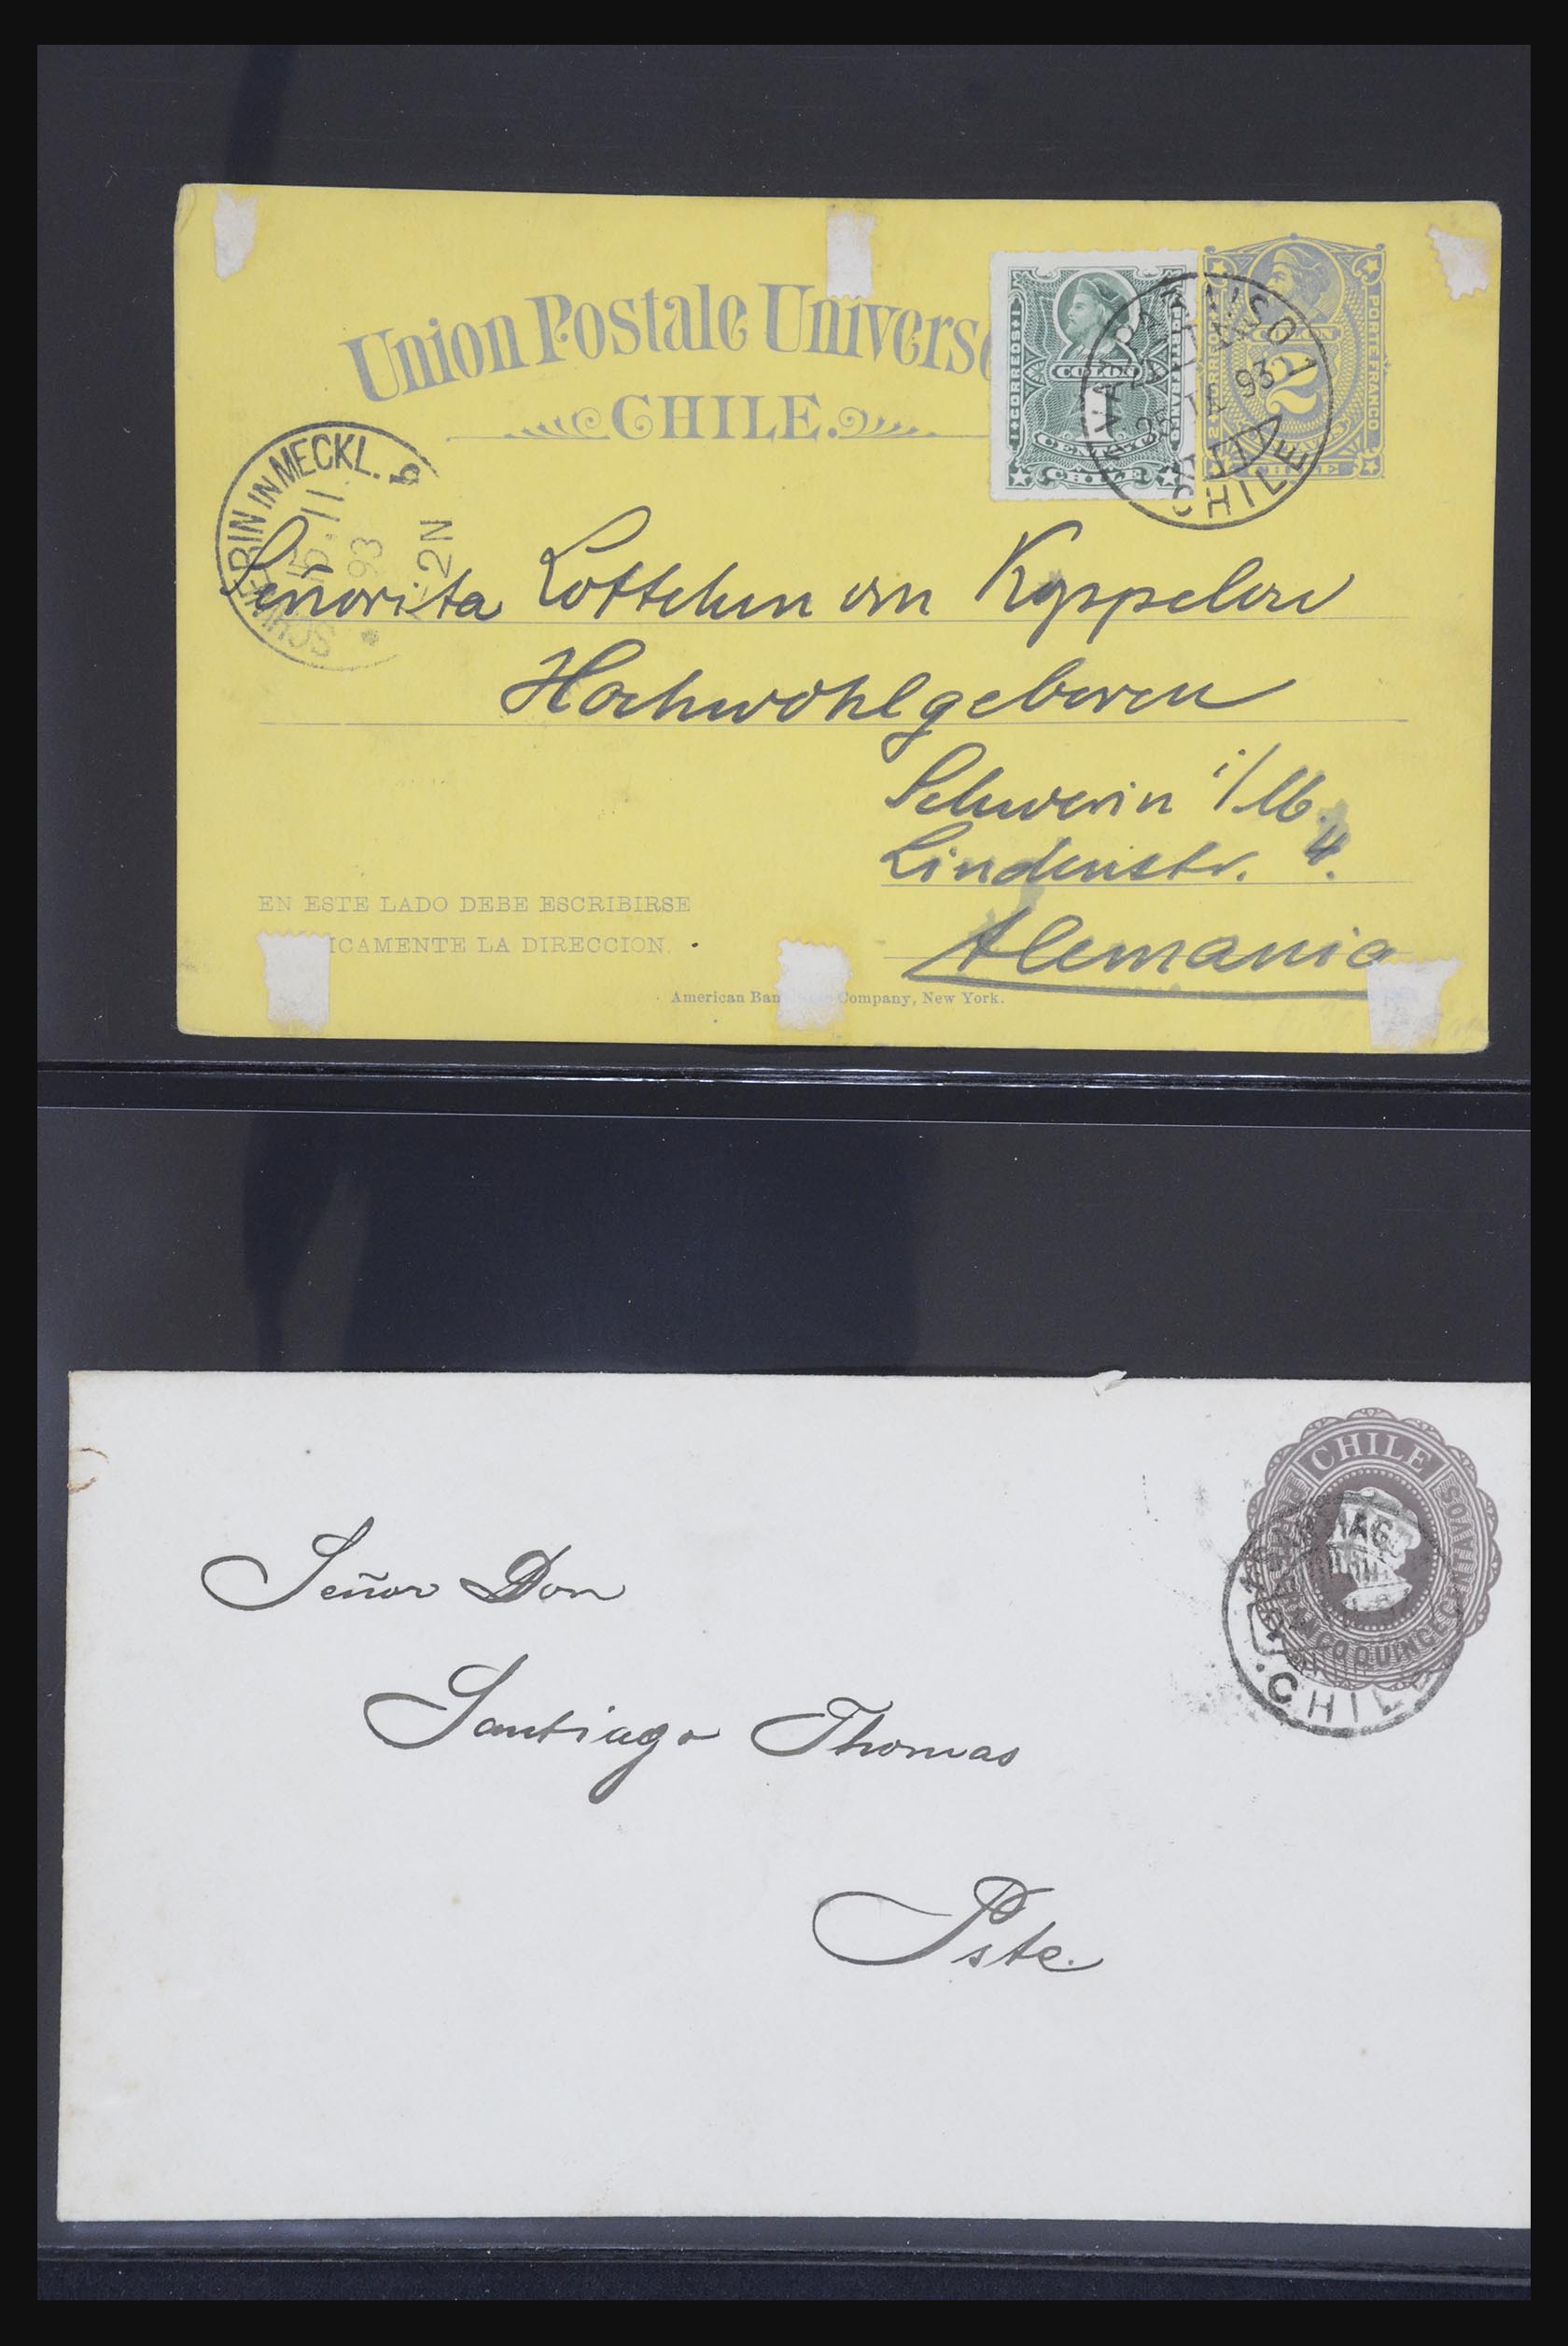 Union Postale Universe
CHILE.
CORREOS
PORTE FRANCO
COLON
1
CENTAVO
CHILE
2
PORTE FRANCO
CHILE
VALPARAISO 1
93
CHILE
SCHWERIN IN MECKL. b
15.11
93
2N
Señorita Lottchen von
Hochwohlgeboren
Schwerin i/M.
Lindenstr. 4.
Alemania
EN ESTE LADO DEBE ESCRIBIRSE
ICAMENTE LA DIRECCION.
American Ban Company, New York.
CHILE
QUINCE CENTAVOS
CHILE
Señor Don
Santiago Thomas
Pste.